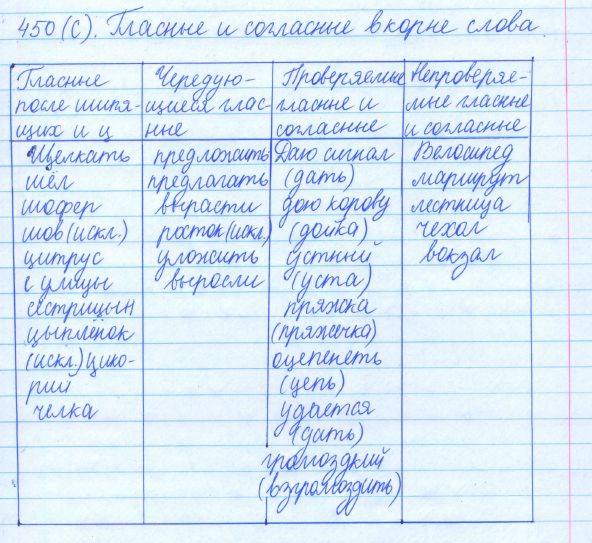 450 (С). Гласные и согласные в корне слова.
Гласные после шипя-щих и ц
Чередую-щиеся глас-ные
Проверяемые гласные и согласные
Непроверяе-мые гласные и согласные
Щелкать предложить Даю сигнал Велосипед
шёл предлагать (дать) маршрут
шофер вырасти дою корову лестница
шов (искл.) росток (искл.) (дойка) чехол
цитрус уложить устный вокзал
с улицы выросли (уста)
сестрицын пряжка
цыплёнок (пряжечка)
(искл.) цико- оцепенеть
рий (цепь)
челка удается
(дать)
громоздкий
(взгромоздить)